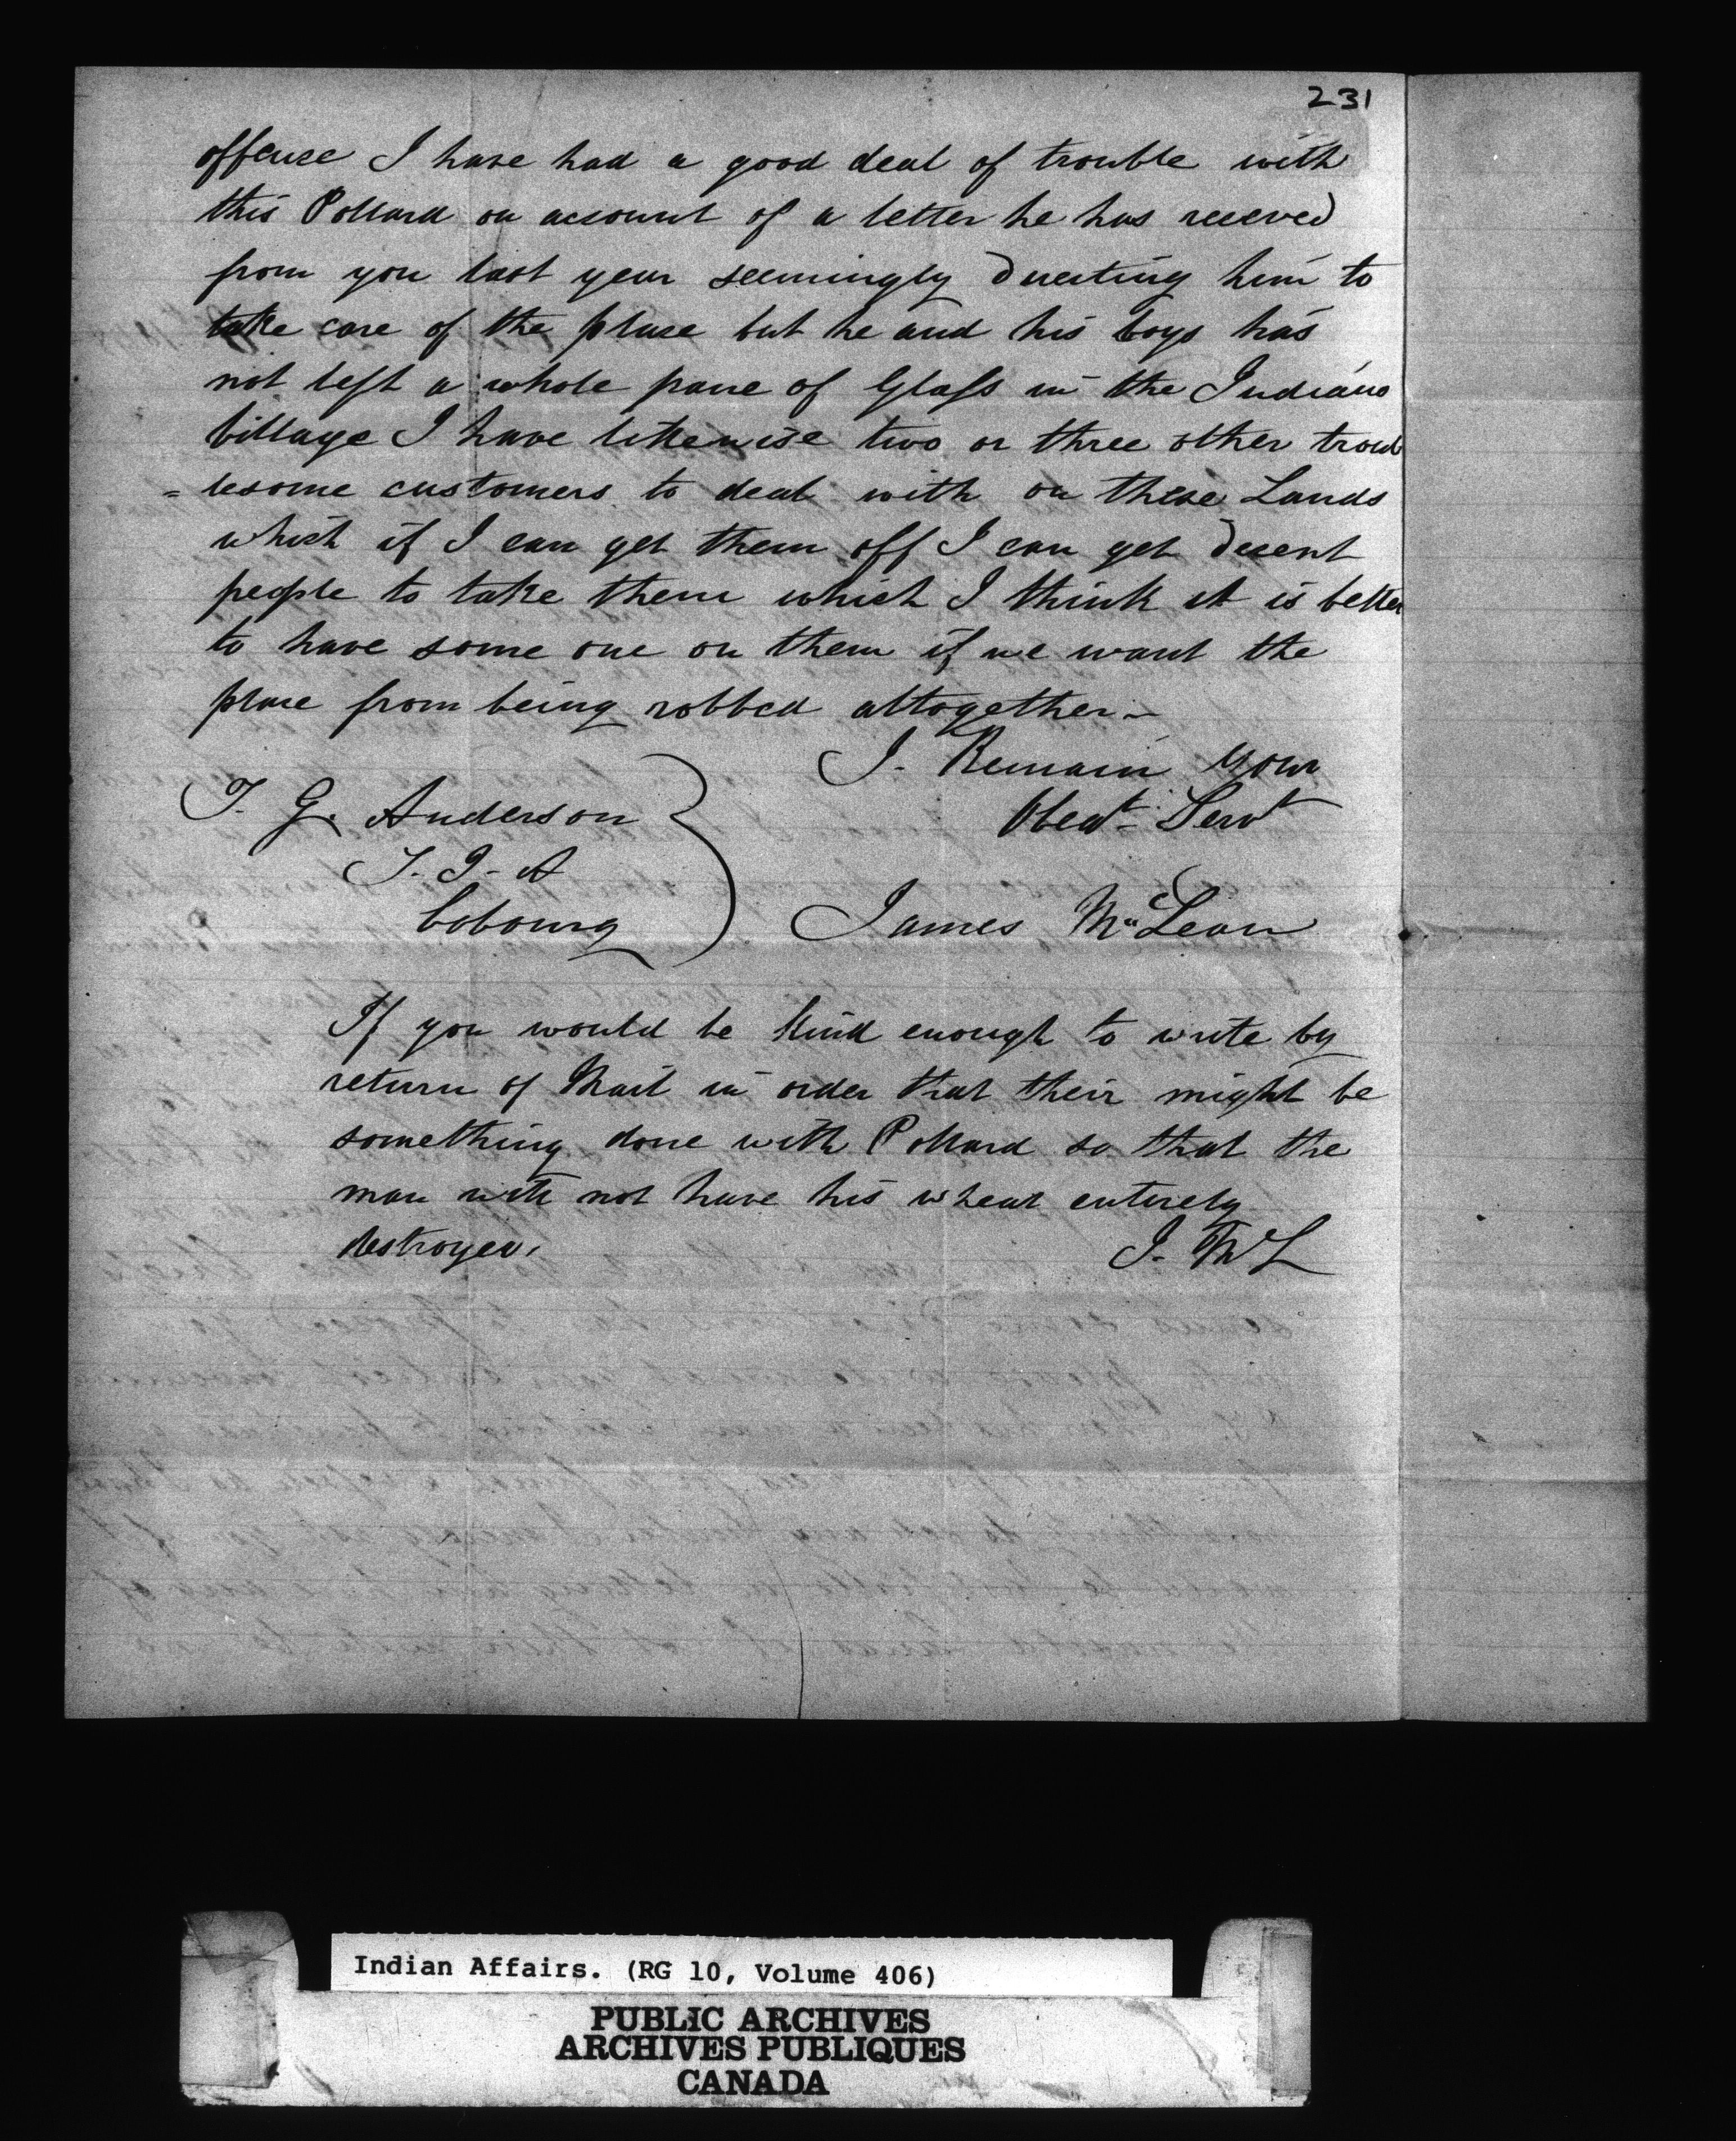 231
offense I have had a good deal of trouble with
this Pollard on account of a letter he has receeved
from you last year seemingly Directing him to
take care of the place but he and his boys has
not left a whole pane of Glass in the Indians
Village I have likewise two or three other troub
=lesome customers to deal with on these Lands
which if I can get them off I can get Decent
people to take them which I think it is better
to have some one on them if we want the
place from being robbed altogether
I. Remain your
Obedt. Servt
T. G. Anderson
S. I. A
Cobourg
James McLean
If you would be kind enough to write by
return of Mail in order that their might be
something done with Pollard so that the
man will not have his wheat entirely
destroyed.
J. McL
Indian Affairs. (RG 10, Volume 406)
PUBLIC ARCHIVES
ARCHIVES PUBLIQUES
CANADA